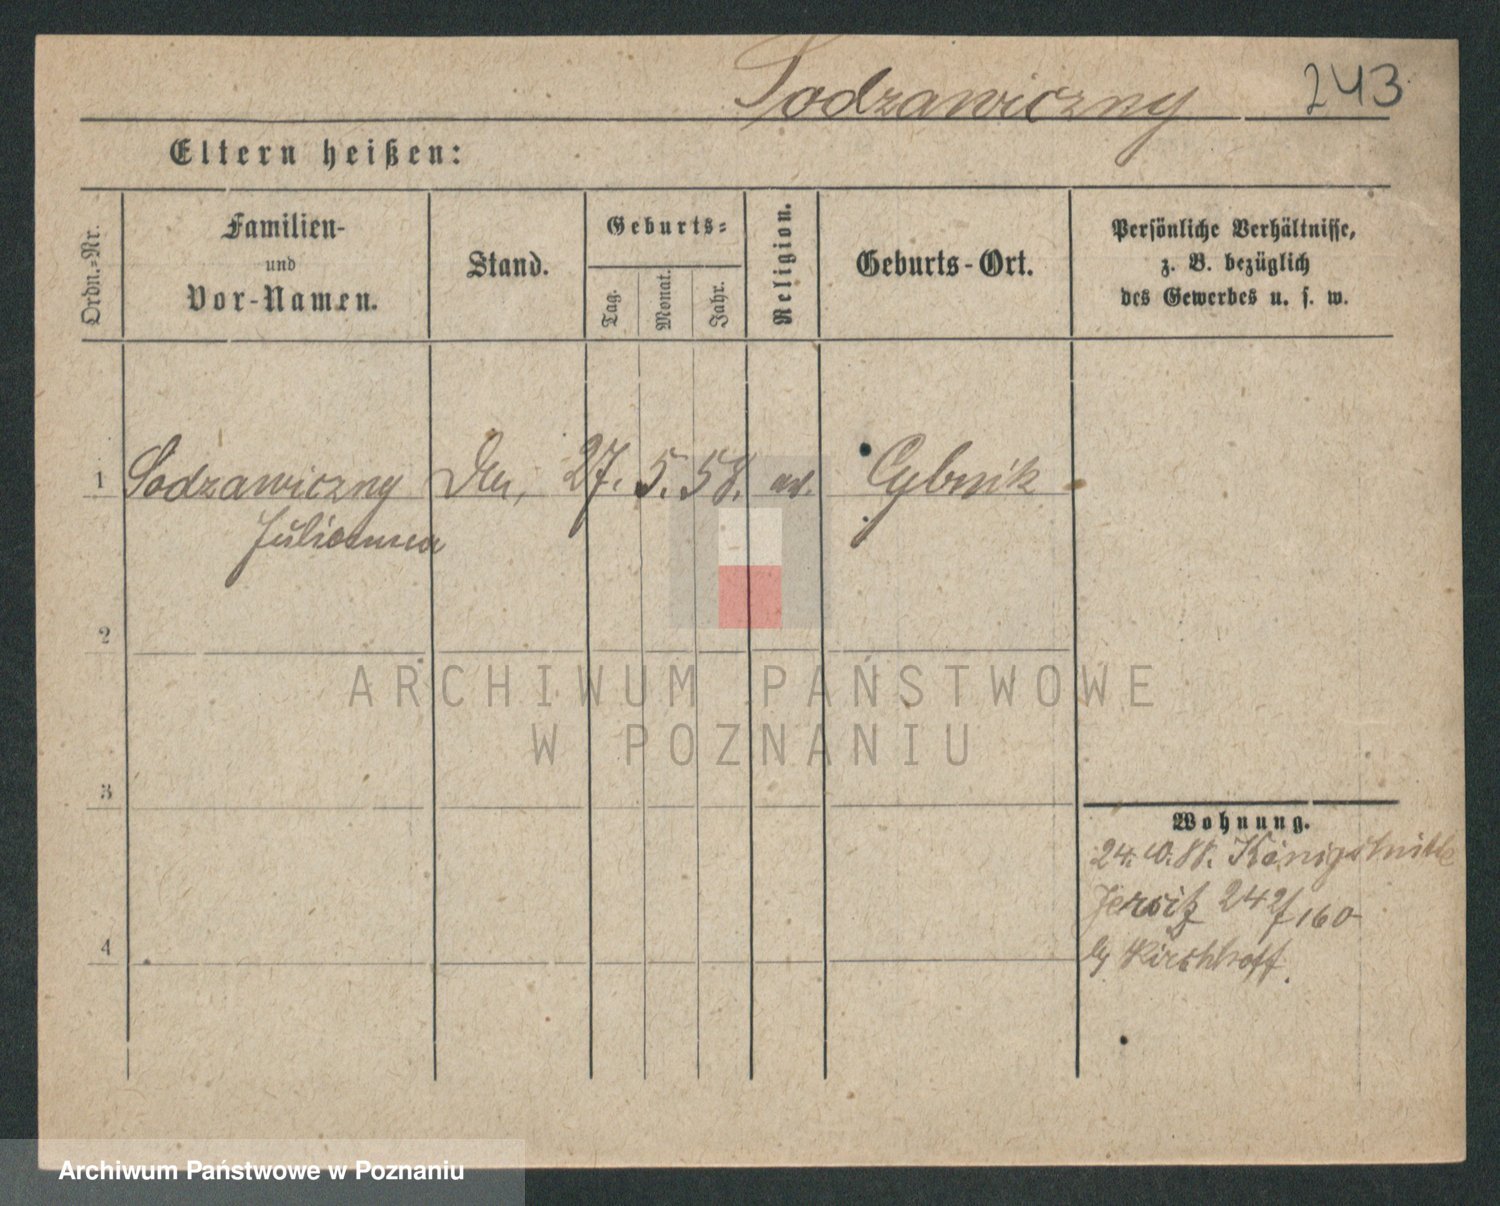 Sodzawiczny 243
Eltern heißen:
Ordn.-Nr.
Familien-
und
Vor-Namen.
Stand.
Geburts-
Tag.
Monat.
Jahr.
Religion.
Geburts-Ort.
Persönliche Verhältnisse,
z. B. bezüglich
des Gewerbes u. s. w.
1 Sodzawiczny 27. 5. 58. Cybnik
Julianna
2
ARCHIWUM PAŃSTWOWE
W POZNANIU
3
Wohnung.
24. Königstnitte
Jersitz 242/160
by Kirchhoff.
4
Archiwum Państwowe w Poznaniu